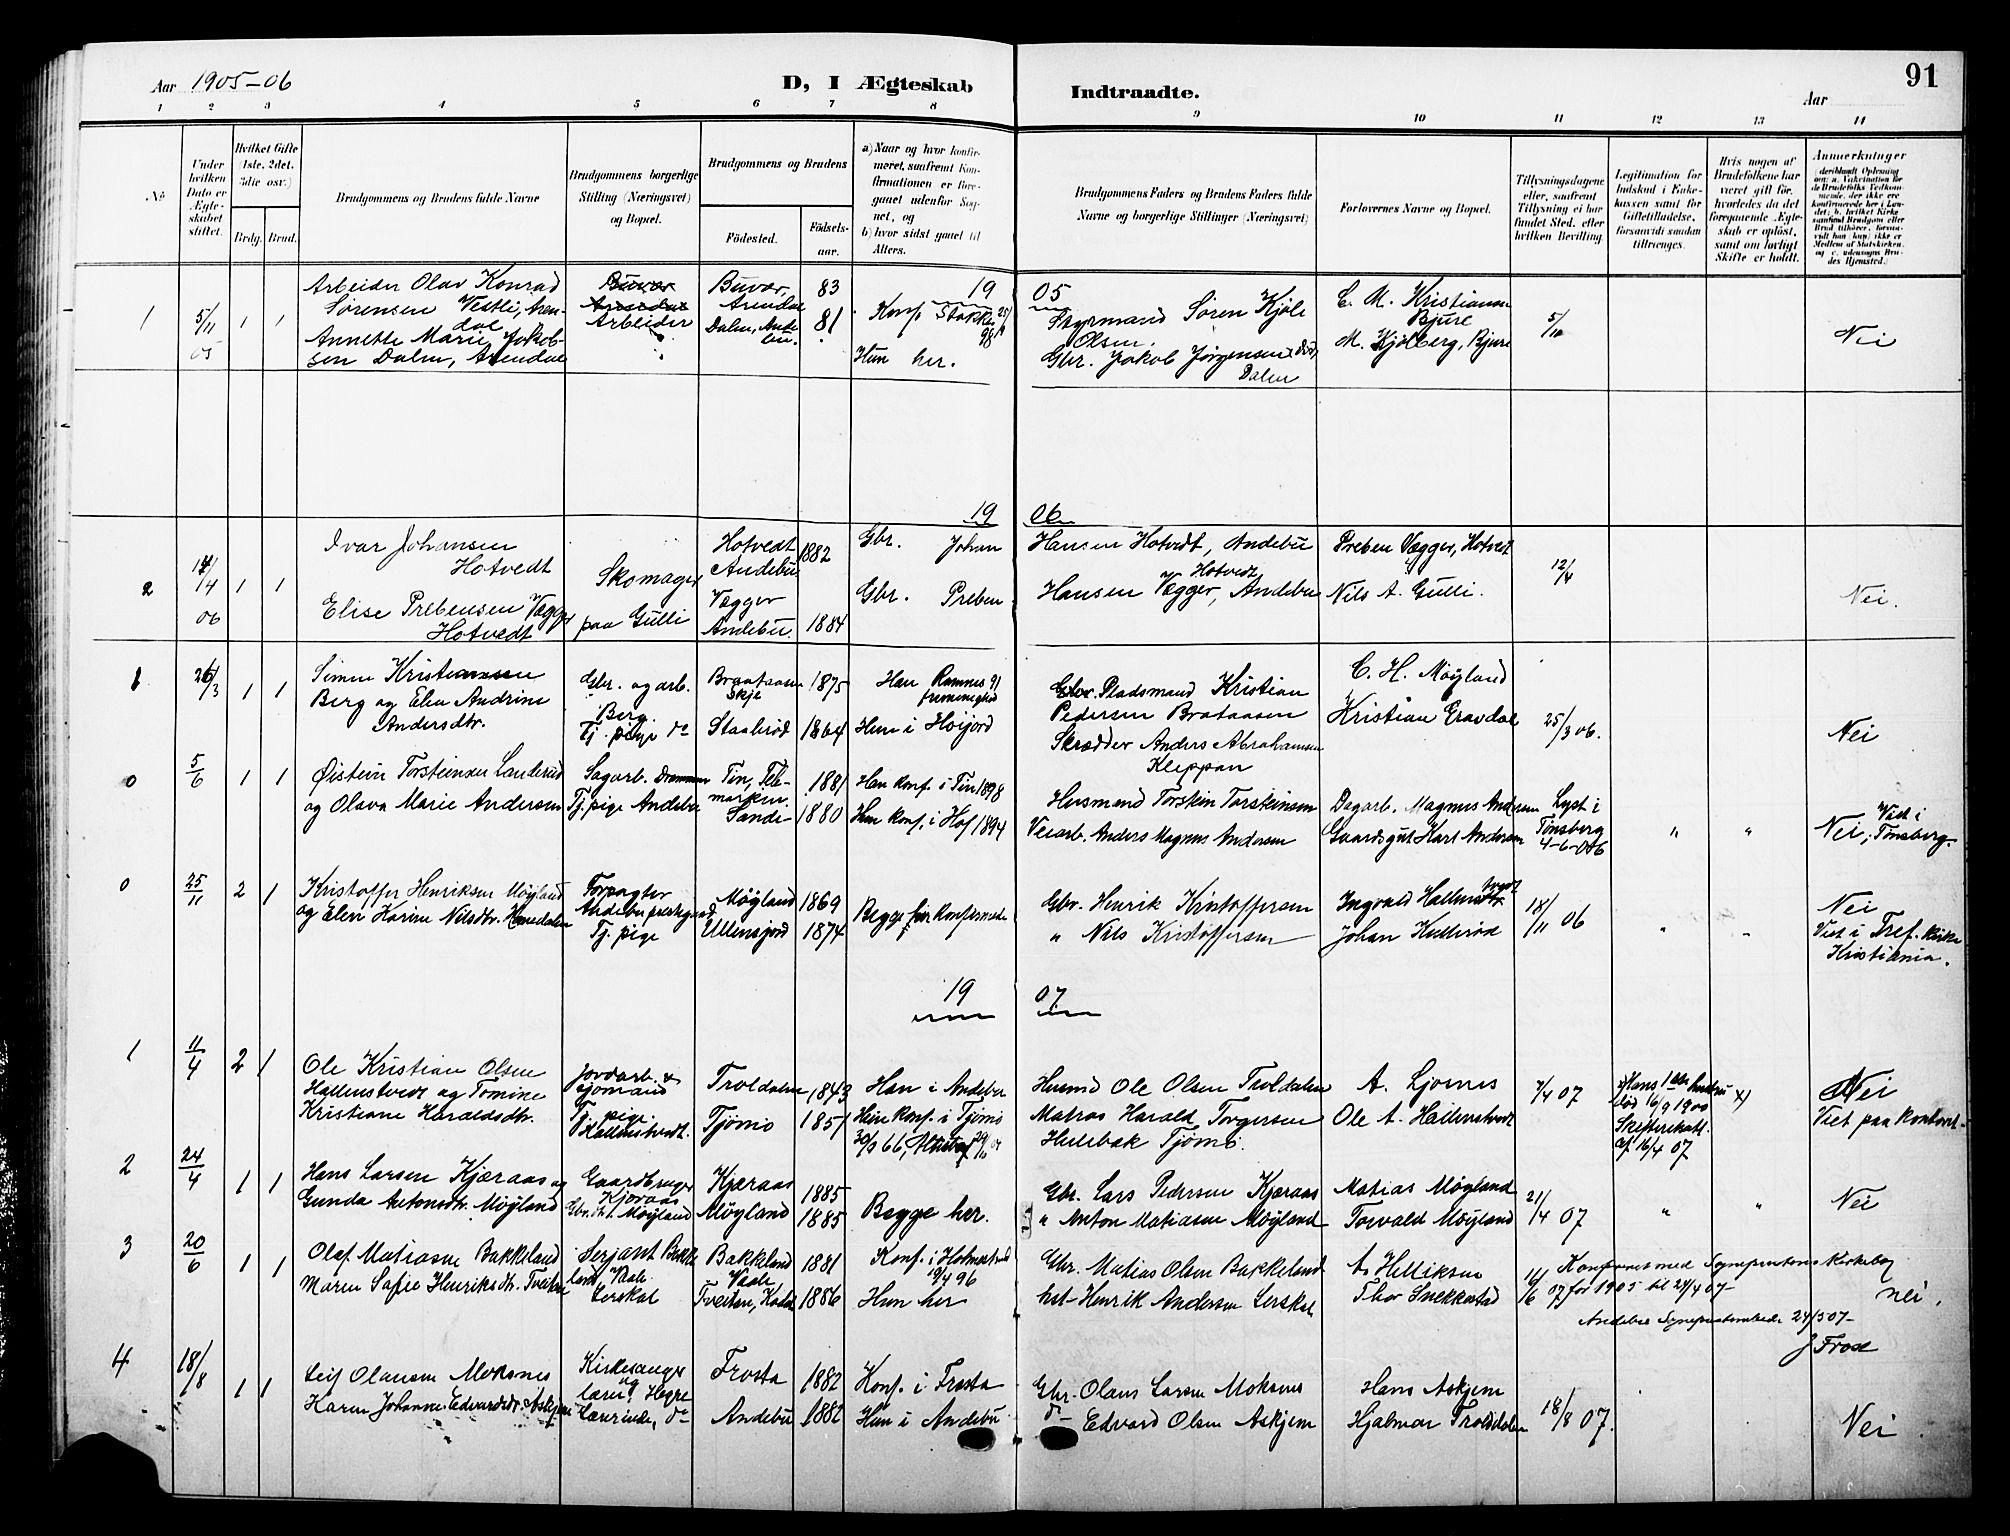 Aar 1905-06
D, I Ægteskab
Indtraadte.
Aar
91
1 2 3 4 5 6 7 8 9 10 11 12 13 14
No
Under hvilken Dato er Ægteskabet stiftet.
Hvilket Gifte (1ste, 2det, 3die osv.)
Brdg. Brud.
Brudgommens og Brudens fulde Navne
Brudgommens borgerlige Stilling (Næringsvei) og Bopæl.
Brudgommens og Brudens
Fødested.
Fødselsaar.
a) Naar og hvor konfirmeret, saafremt Konfirmationen er foregaaet udenfor Sognet, og
b) hvor sidst gaaet til Alters.
Brudgommens Faders og Brudens Faders fulde Navne og borgerlige Stillinger (Næringsvei)
Forlovernes Navne og Bopæl.
Tillysningsdagene eller, saafremt Tillysning ei har fundet Sted, efter hvilken Bevilling.
Legitimation for Indskud i Enkekassen samt for Giftetilladelse, forsaavidt saadan tiltrænges.
Hvis nogen af Brudefolkene har været gift før, hvorledes da det foregaaende Ægteskab er opløst, samt om lovligt Skifte er holdt.
Anmerkninger (deriblandt Oplysning om: a. Vakcination for de Brudefolks Vedkommende, der ikke ere konfirmerede her i Landet; b. hvilket Kirkesamfund Brudgom eller Brud tilhører, forsaavidt han (hun) ikke er Medlem af Statskirken, og c. udensogns Brudes Hjemsted.)
19 05
1 5/11 05 1 1
Arbeider Olav Konrad
Sørensen Vestli, Arendal
Annette Marie Jakobsen Dalen, Arendal
Buvær Arendal
Arbeider
Buvær, Arendal 83
Dalen, Andebu. 81
Konf. Stokke 25/9 98
Hun her.
Styrmand Søren Kjøle Olsen.
Gbr. Jakob Jørgensen (død) Dalen
C. M. Kristiansen Bjure
M. Kjølberg, Bjure
5/10
Nei
19 06
2 14/4 06 1 1
Ivar Johansen Hotvedt
Elise Prebensen Vægger Hotvedt
Skomager paa Gulli
Hotvedt Andebu 1882
Vægger Andebu. 1884
Gbr. Johan Hansen Hotvedt, Andebu
Gbr. Preben Hansen Vægger, Hotvedt Andebu
Preben Vægger, Hotvedt
Nils A. Gulli.
12/4
Nei.
1 26/3 1 1
Simen Kristiansen
Berg og Elen Andrine
Andersdtr.
Gbr. og arb. Berg.
Tj. pige do
Braataasen Skje 1875
Staalerød 1864
Han Ramnes 91 fremmighed
Hun i Høijord
Gbr. Pladsmand Kristian
Pedersen Brataasen
Skrædder Anders Abrahamsen
Kleppan
C. H. Møyland
Kristian Gravdal
25/3 06.
Nei
0 5/6 1 1
Øistein Torsteinsen Landerud
og Olava Marie Andersen
Sagarb. Drammen
Tj. pige Andebu
Tin, Telemarken. 1881
Sande 1880
Han konf. i Tin 1898
Hun konf. i Hof 1894
Husmand Torstein Torsteinsen
Veiarb. Anders Magnus Andersen
Dagarb. Magnus Andersen
Gaardsgut Karl Andersen
Lyst i Tønsberg 4-6-06
" "
Nei; Viet i Tønsberg.
0 25/11 2 1
Kristoffer Henriksen Møyland
og Elen Karine Nilsdtr. Hanedalen
Forpagter Andebu prestegaard
Tj. pige
Møyland 1869
Ullensjord 1874
Begge før konfirmerede
Gbr. Henrik Kristoffersen
" Nils Kristoffersen
Ingvald Hallenstvedt
Johan Kullerød
18/11 06
" "
Nei
Viet i Tref. kirke
Kristiania.
19 07
1 11/4 2 1
Ole Kristian Olsen
Hallenstvedt og Tomine
Kristiane Haraldsdtr.
Jordarb. & sjømand
Tj. pige Hallenstvedt.
Troldalen 1843
Tjømø 1851
Han i Andebu
Hun konf. i Tjømø
30/9 66,
Husmd Ole Olsen Troldalen
Matros Harald Torgersen
Hellebæk Tjømø.
A. Ljornis
Ole A. Hallenstvedt
7/4 07
Hans 1ste hustru x)
død 16/9 1900
Skifteretsatt.
af 16/4 07
Nei
Viet paa kontoret.
2 24/4 1 1
Hans Larsen Kjæraas og
Gunda Antonsdtr. Møyland
Gaardbruger Kjæraas
Gbr.dt. Møyland
Kjæraas 1885
Møyland 1885
Begge her.
Gbr. Lars Pedersen Kjæraas
" Anton Matiasen Møyland
Matias Møyland
Torvald Møyland
21/4 07
" "
Nei
3 20/6 1 1
Olaf Matiasen Bakkeland
Maren Sofie Henriksdtr. Tveiten
Serjant Bakkeland, Vaale
Lerskal
Bakkeland Vaale 1881
Tveiten, Kodal 1886
Konf. i Holmestrand 19/4 96
Hun her
Gbr. Matias Olsen Bakkeland
hst- Henrik Andersen Lerskal
A. Helliksen
Thor Snekkestad
16/6 07
Konfereret med Sogneprestens Kirkebog
for 1905 til 24/4 07-
Andebu Sogneprestembede 24/5 07-
J Frost
nei.
4 18/8 1 1
Leif Olausen Moksnes
Karen Johanne Edvardsdtr. Askjem
Kirkesanger og lærer Hegre
Lærerinde, do
Frosta 1882
Andebu 1882
Konf. i Frosta
Hun i Andebu.
Gbr. Olaus Larsen Moksnes
do Edvard Olsen Askjem
Hans Askjem
Hjalmar Trolldalen
18/8 07.
Nei.